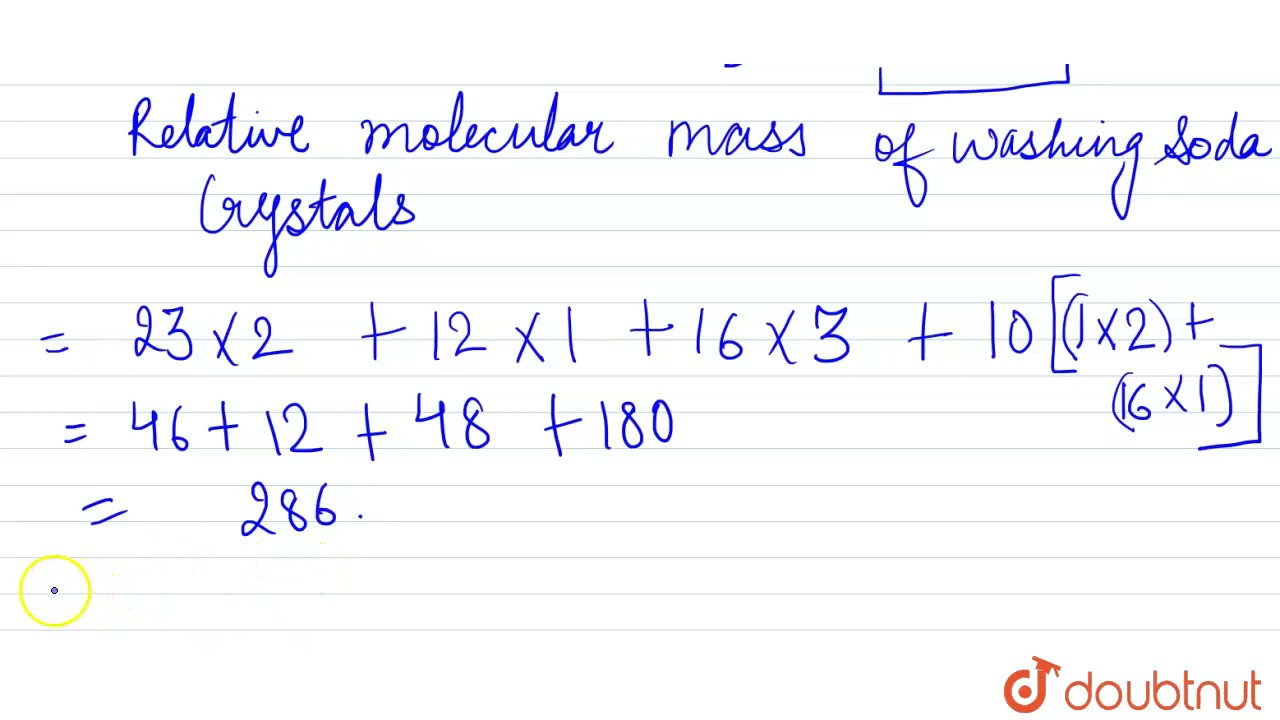 Relative molecular mass of washing Soda
Crystals
= 23 × 2 + 12 × 1 + 16 × 3 + 10 [(1 × 2) +
(16 × 1)]
= 46 + 12 + 48 + 180
= 286.
doubtnut